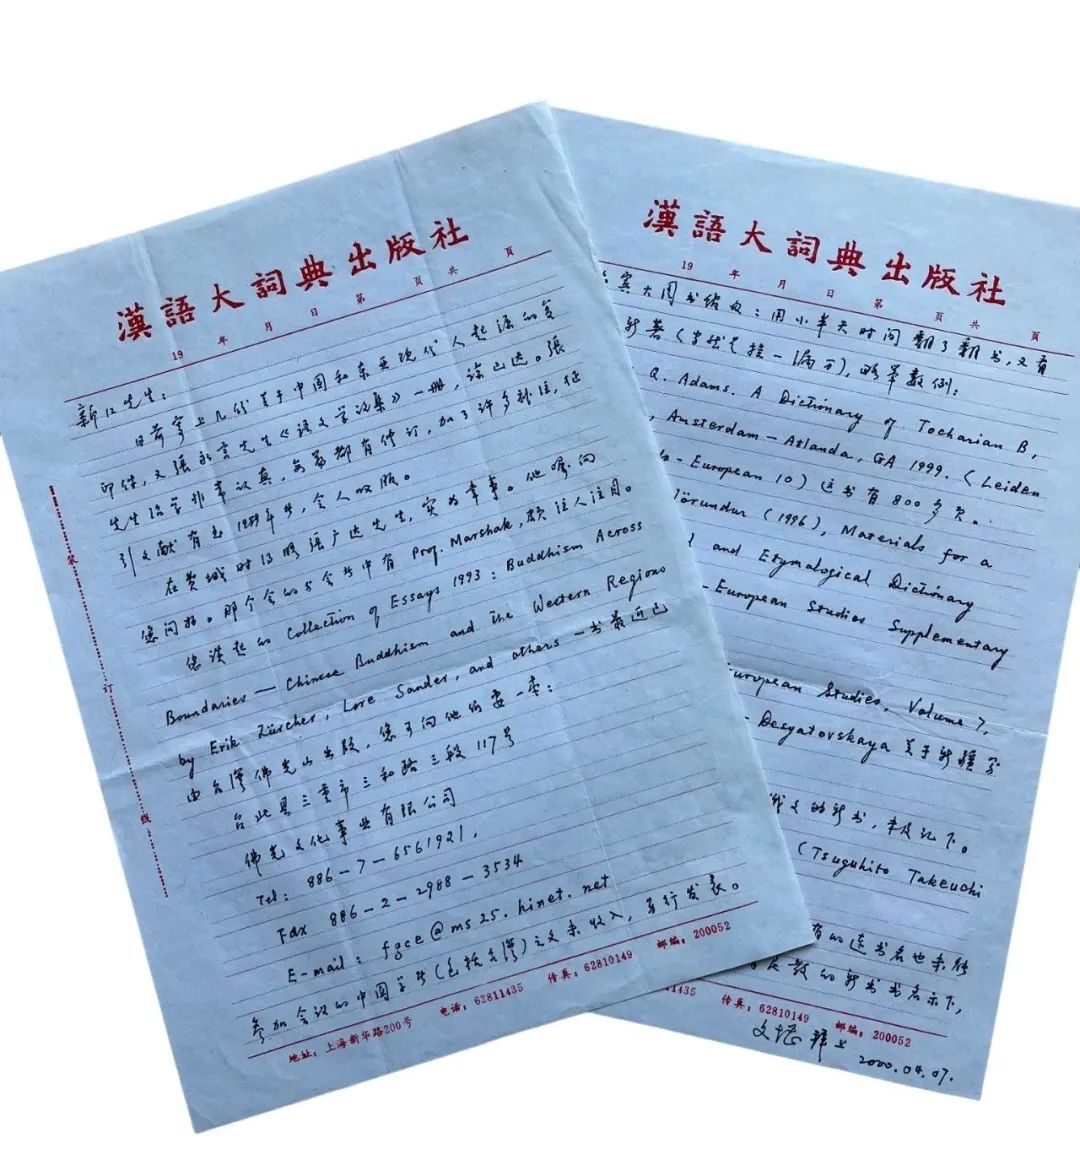 漢語大詞典出版社
19 年 月 日 第 頁 共 頁
新江先生：
日前寄上几代关于中国和东亚现代人起源的复
印件，又张永言先生《语文学论集》一册，谅已达。张
先生治学非常认真，各篇都有修订，加了许多补注，征
引文献有至1999年者，令人叹服。
在费城时得晤张广达先生，实为幸事。他嘱向
您问好。那个会的与会者中有 Prof. Marshak，颇引人注目。
您谈起的 Collection of Essays 1993: Buddhism Across
Boundaries — Chinese Buddhism and the Western Regions
by Erik Zürcher, Lore Sander, and others 一书最近已
由台湾佛光山出版，您可向他们要一本：
台北县三重市三和路三段117号
佛光文化事业有限公司
Tel: 886-7-6561921,
Fax 886-2-2988-3534
E-mail: fgce@ms25.hinet.net
参加会议的中国学者(包括台湾)之文未收入，另行发表。
地址：上海新华路200号 电话：62811435 传真：62810149 邮编：200052
装
订
线
漢語大詞典出版社
19 年 月 日 第 頁 共 頁
宾大图书馆: 用小半天时间翻了翻书，又有
新著(当然是挂一漏万)，略举数例：
Q. Adams. A Dictionary of Tocharian B,
, Amsterdam — Atlanda, GA 1999. (Leiden
- European 10) 这书有800多页。
Jörundur (1996), Materials for a
and Etymological Dictionary
- European Studies Supplementary
European Studies, Volume 7,
- Desyatovskaya 关于新疆
文的新书，未及记下。
(Tsuguhito Takeuchi
有的连书名也未能
数的新书书名示下，
1435 传真：62810149 邮编：200052
文堪 拜上
2000.04.07.